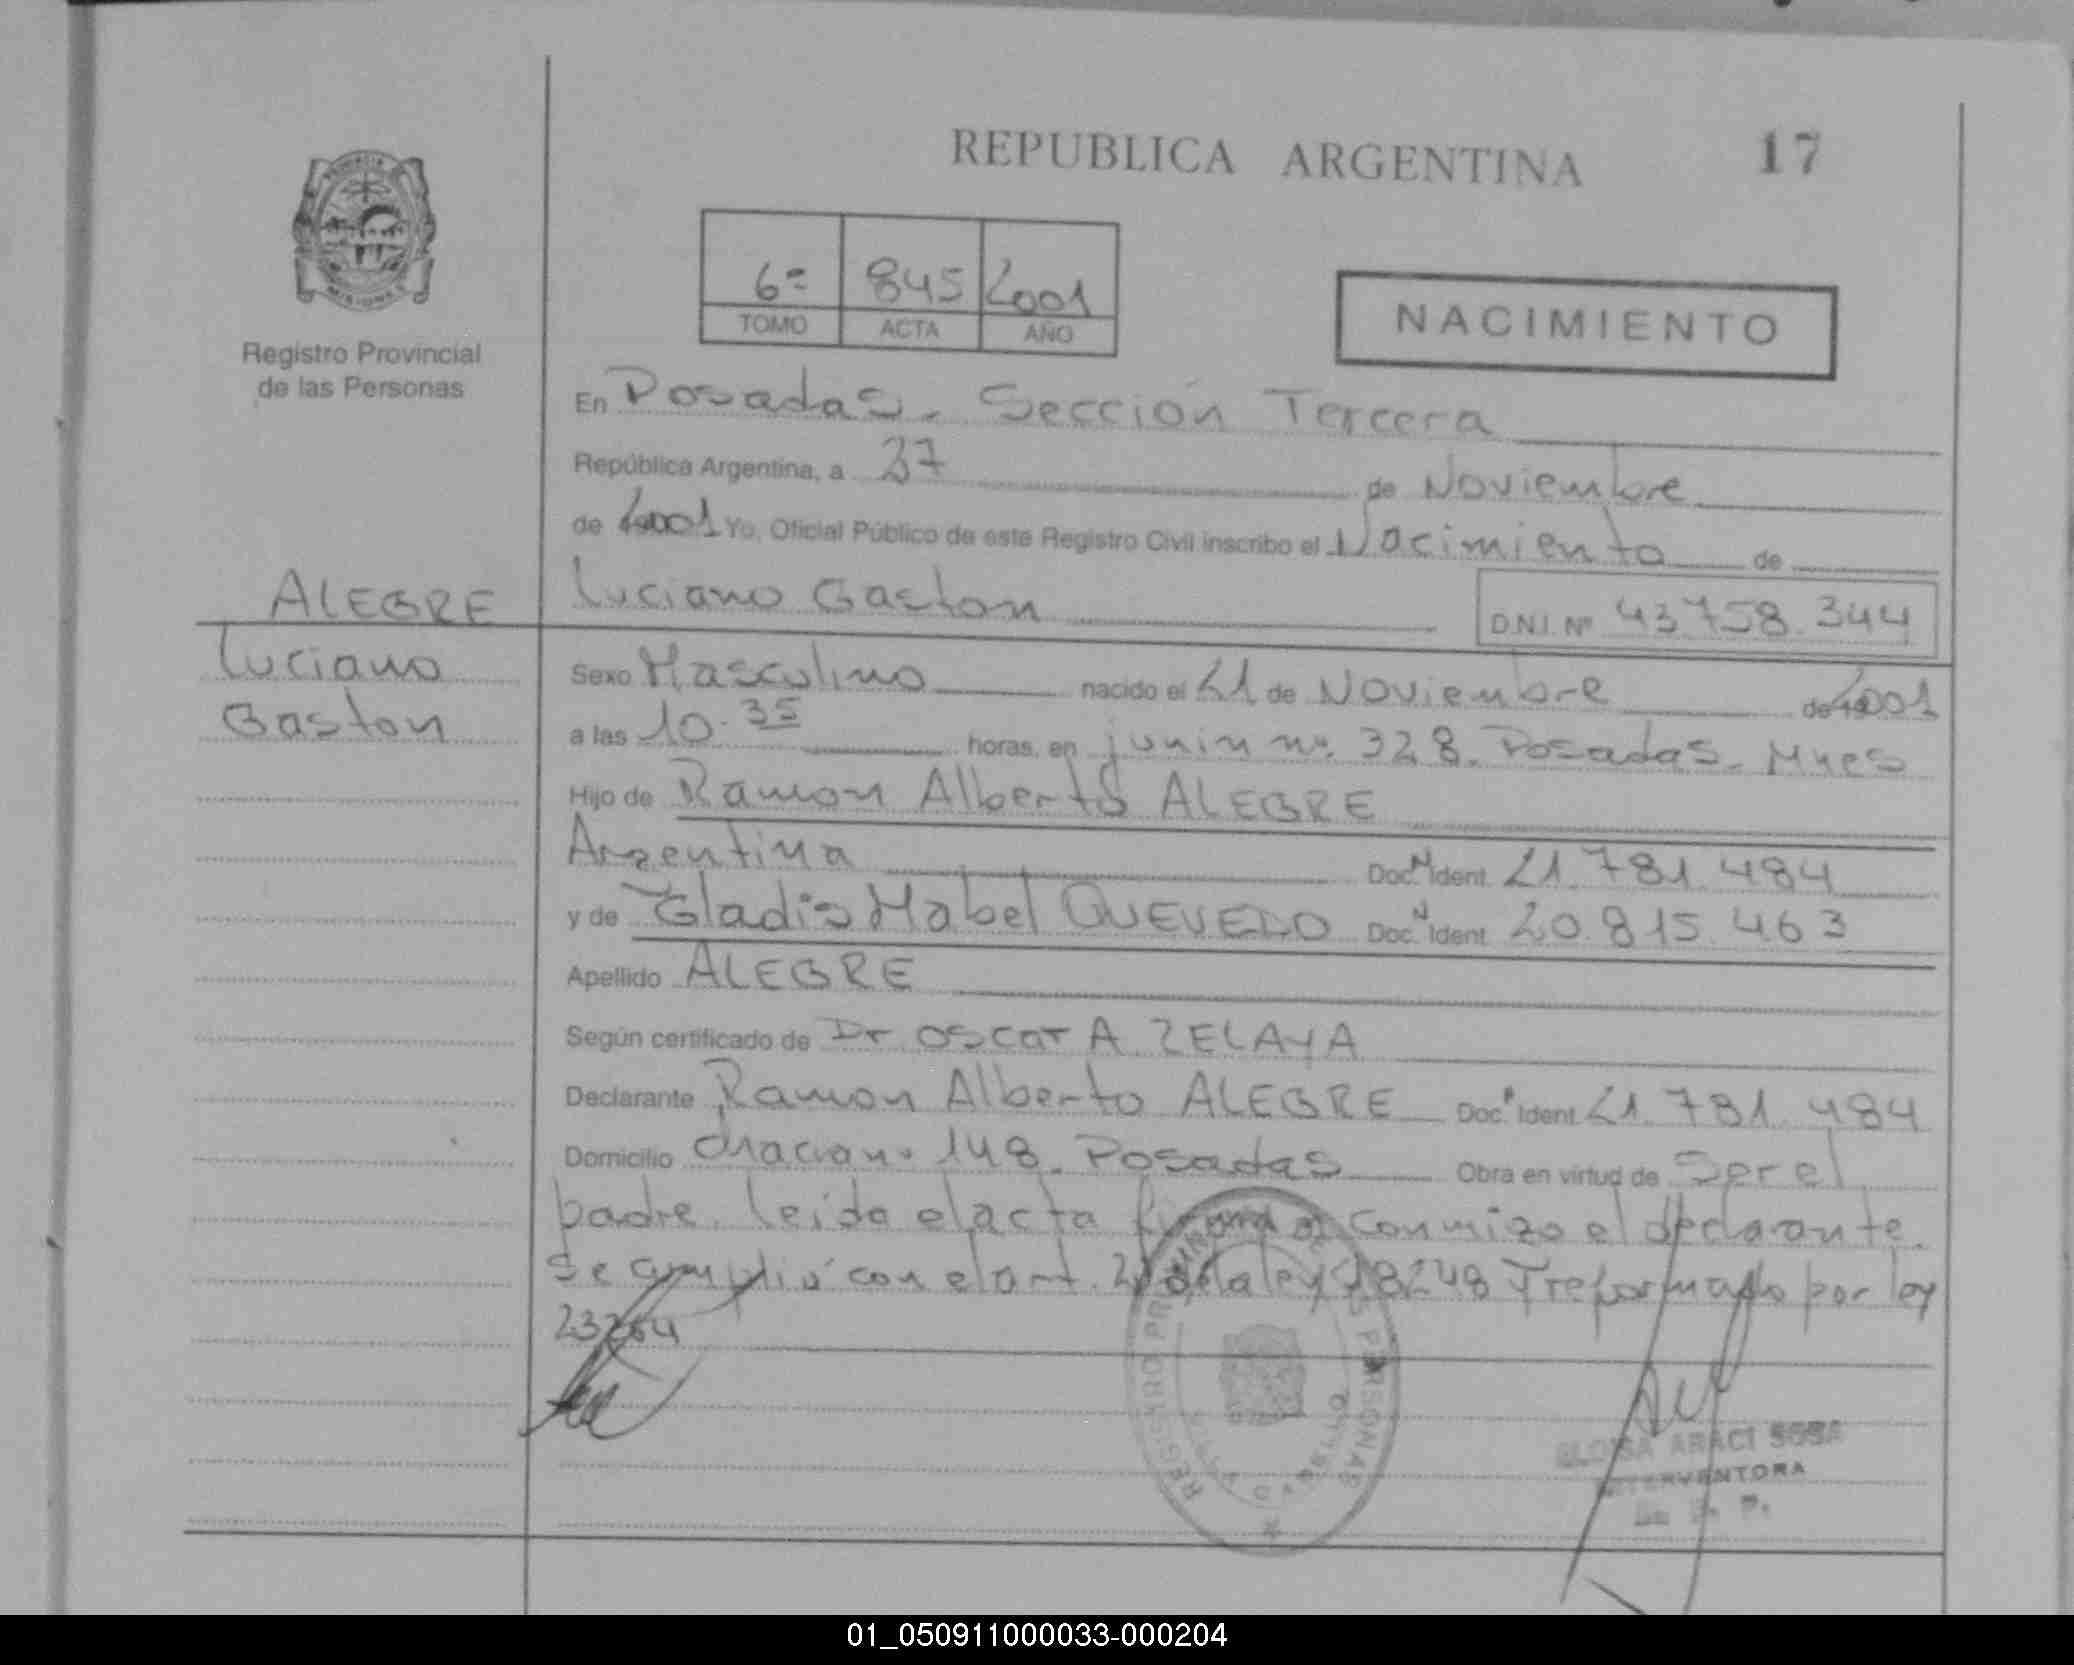 REPUBLICA ARGENTINA 17
MISIONES
Registro Provincial
de las Personas
6º 845 2001
TOMO ACTA AÑO
NACIMIENTO
En Posadas. Sección Tercera
República Argentina, a 27 de Noviembre
de 2001 Yo, Oficial Público de este Registro Civil inscribo el Nacimiento de
ALEGRE
Luciano
Gaston
Luciano Gaston D.N.I. Nº 43.758.344
Sexo Masculino nacido el 21 de Noviembre de 2001
a las 10.35 horas, en junin nº. 328. Posadas. Mnes
Hijo de Ramon Alberto ALEGRE
Argentina Doc. N Ident. 21.781.484
y de Gladis Mabel QUEVEDO Doc. N Ident. 20.815.463
Apellido ALEGRE
Según certificado de Dr. OSCAR A. ZELAYA
Declarante Ramon Alberto ALEGRE Doc. Ident. 21.781.484
Domicilio 148. Posadas Obra en virtud de Ser el
padre. leida el acta firma conmigo el declarante.
Se amplió con el art. de la ley 18248 reformado por ley
23264
REGISTRO PROVINCIAL DE LAS PERSONAS
ELOISA ARACI SOSA
INTERVENTORA
01_050911000033-000204